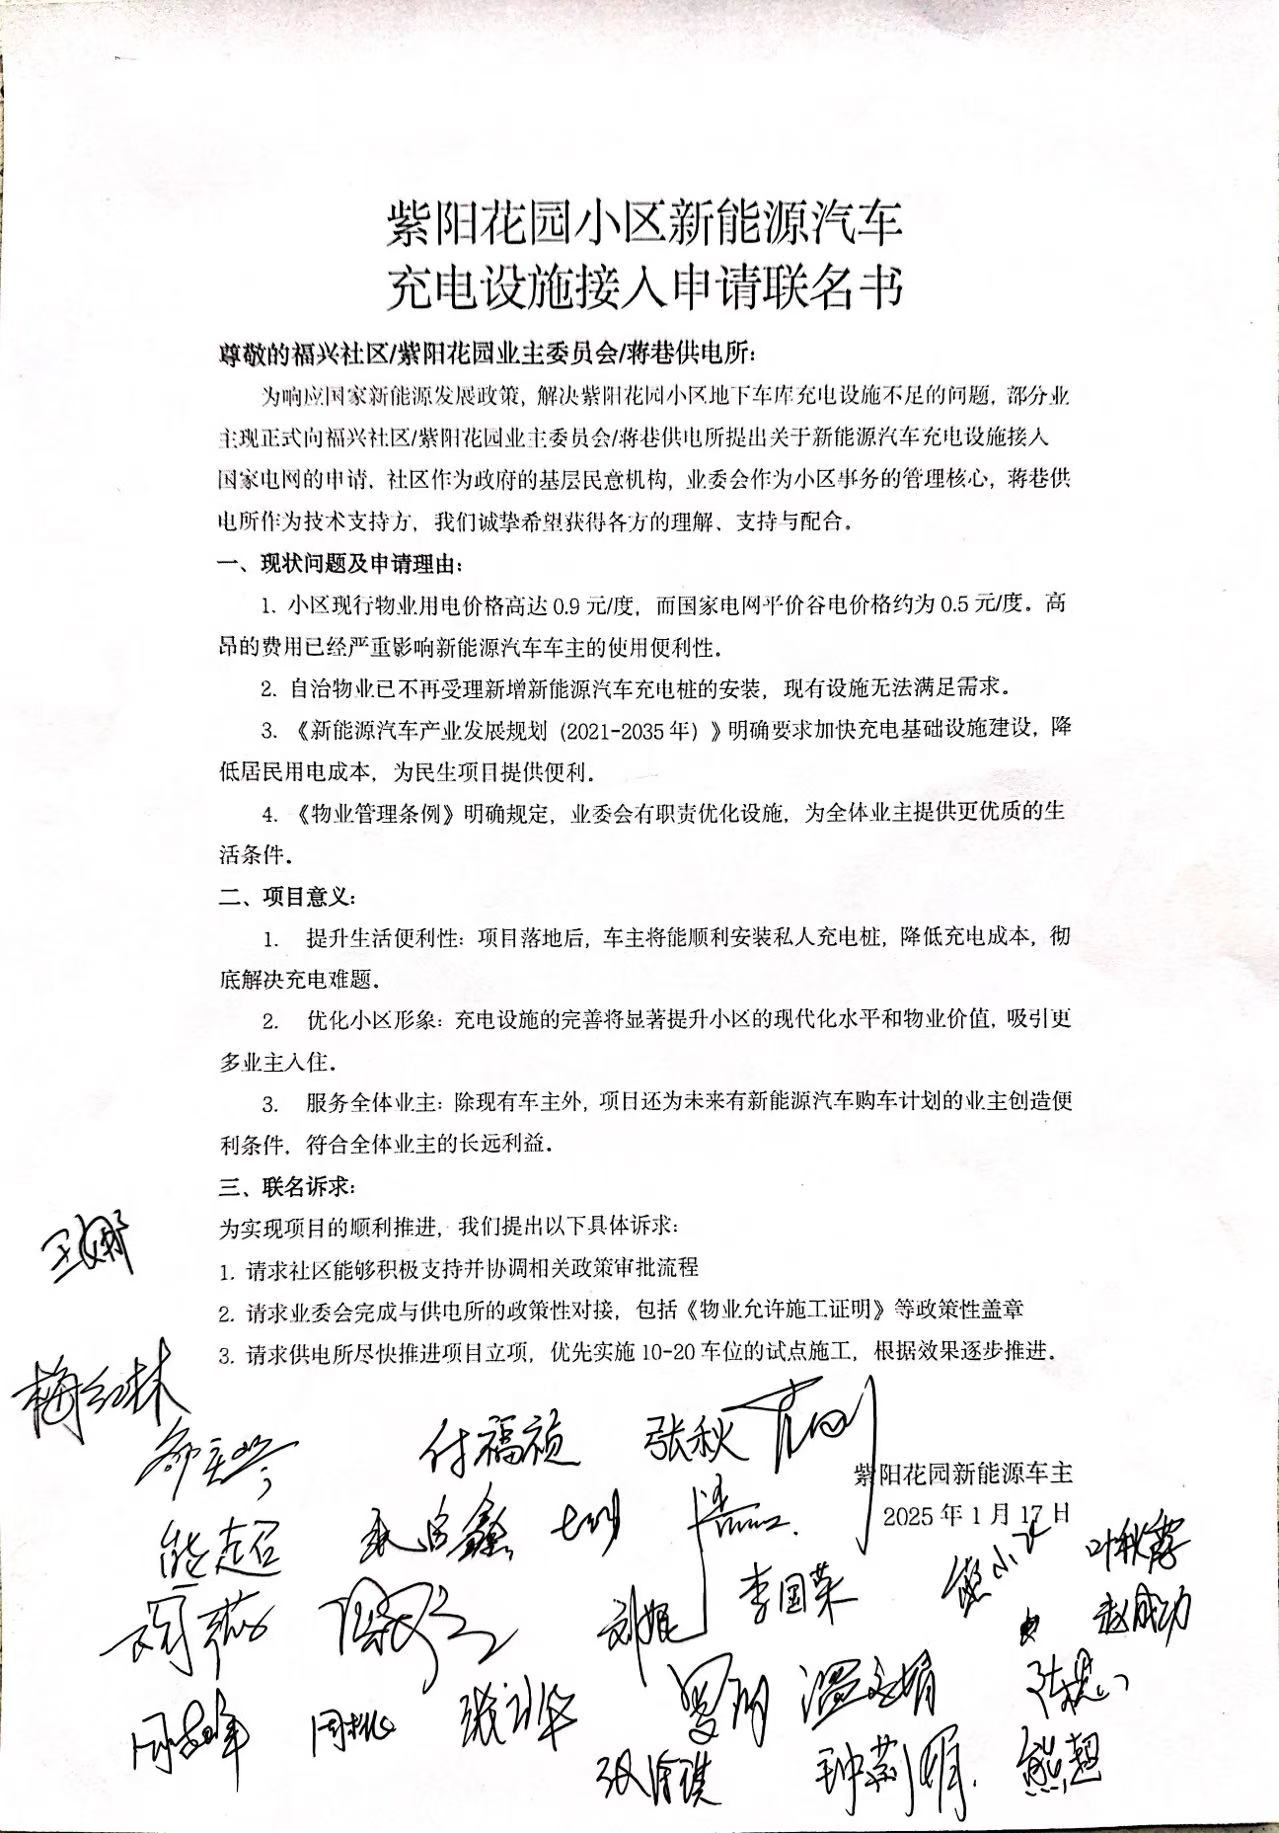 紫阳花园小区新能源汽车
充电设施接入申请联名书
尊敬的福兴社区/紫阳花园业主委员会/蒋巷供电所：
为响应国家新能源发展政策，解决紫阳花园小区地下车库充电设施不足的问题，部分业
主现正式向福兴社区/紫阳花园业主委员会/蒋巷供电所提出关于新能源汽车充电设施接入
国家电网的申请，社区作为政府的基层民意机构，业委会作为小区事务的管理核心，蒋巷供
电所作为技术支持方，我们诚挚希望获得各方的理解、支持与配合。
一、现状问题及申请理由：
1. 小区现行物业用电价格高达 0.9 元/度，而国家电网平价谷电价格约为 0.5 元/度。高
昂的费用已经严重影响新能源汽车车主的使用便利性。
2. 自治物业已不再受理新增新能源汽车充电桩的安装，现有设施无法满足需求。
3. 《新能源汽车产业发展规划（2021-2035 年）》明确要求加快充电基础设施建设，降
低居民用电成本，为民生项目提供便利。
4. 《物业管理条例》明确规定，业委会有职责优化设施，为全体业主提供更优质的生
活条件。
二、项目意义：
1. 提升生活便利性：项目落地后，车主将能顺利安装私人充电桩，降低充电成本，彻
底解决充电难题。
2. 优化小区形象：充电设施的完善将显著提升小区的现代化水平和物业价值，吸引更
多业主入住。
3. 服务全体业主：除现有车主外，项目还为未来有新能源汽车购车计划的业主创造便
利条件，符合全体业主的长远利益。
三、联名诉求：
为实现项目的顺利推进，我们提出以下具体诉求：
1. 请求社区能够积极支持并协调相关政策审批流程
2. 请求业委会完成与供电所的政策性对接，包括《物业允许施工证明》等政策性盖章
3. 请求供电所尽快推进项目立项，优先实施 10-20 车位的试点施工，根据效果逐步推进。
王娜
梅红林
付福祯 张秋
紫阳花园新能源车主
2025 年 1 月 17 日
熊超
叶秋霞
李国荣
刘娓
赵成功
周桃
罗明 温文娟
钟莉明
熊超